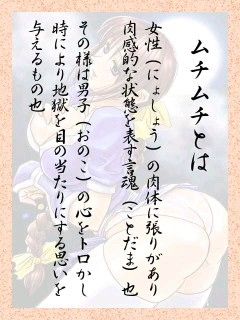 ムチムチとは
女性（にょしょう）の肉体に張りがあり
肉感的な状態を表す言魂（ことだま）也
その様は男子（おのこ）の心をトロかし
時により地獄を目の当たりにする思いを
与えるもの也